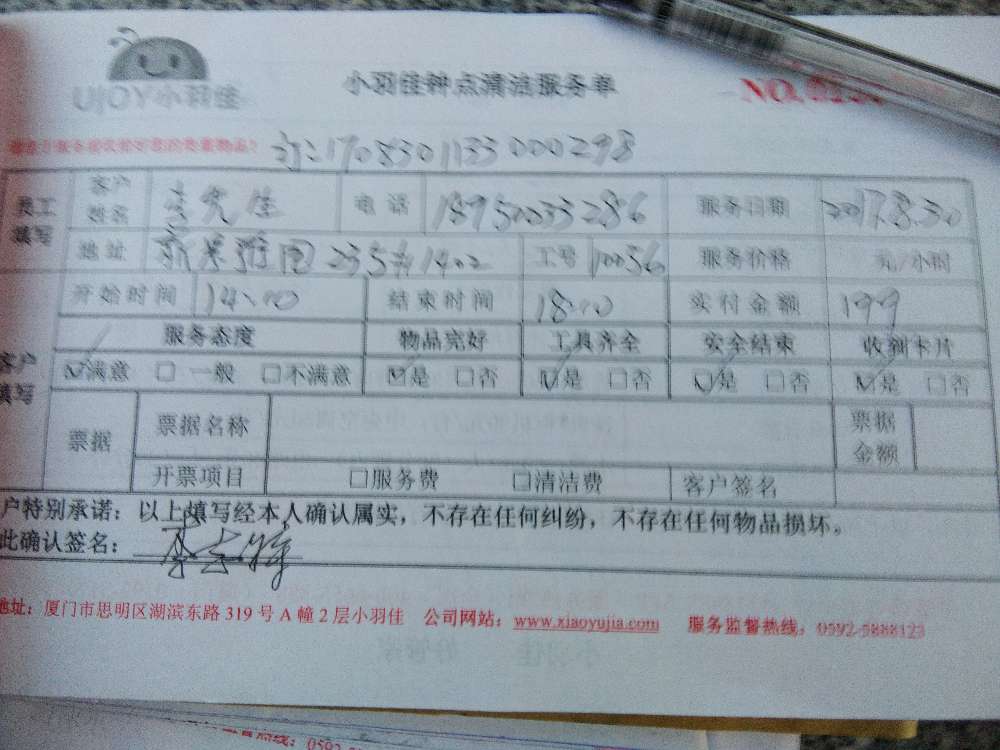 UJOY小羽佳
小羽佳钟点清洁服务单
NO.
订:1708301133000298
员工填写 客户姓名 李先生 电话 服务日期 2017.8.30
地址 工号 10056 服务价格 元/小时
开始时间 14:00 结束时间 18:00 实付金额 199
服务态度 物品完好 工具齐全 安全结束 收到卡片
客户填写 ☑满意 □一般 □不满意 ☑是 □否 ☑是 □否 ☑是 □否 ☑是 □否
票据 票据名称 票据金额
开票项目 □服务费 □清洁费 客户签名
户特别承诺：以上填写经本人确认属实，不存在任何纠纷，不存在任何物品损坏。
此确认签名：
地址：厦门市思明区湖滨东路 319 号 A 幢 2 层小羽佳 公司网站：www.xiaoyujia.com 服务监督热线：0592-5888123